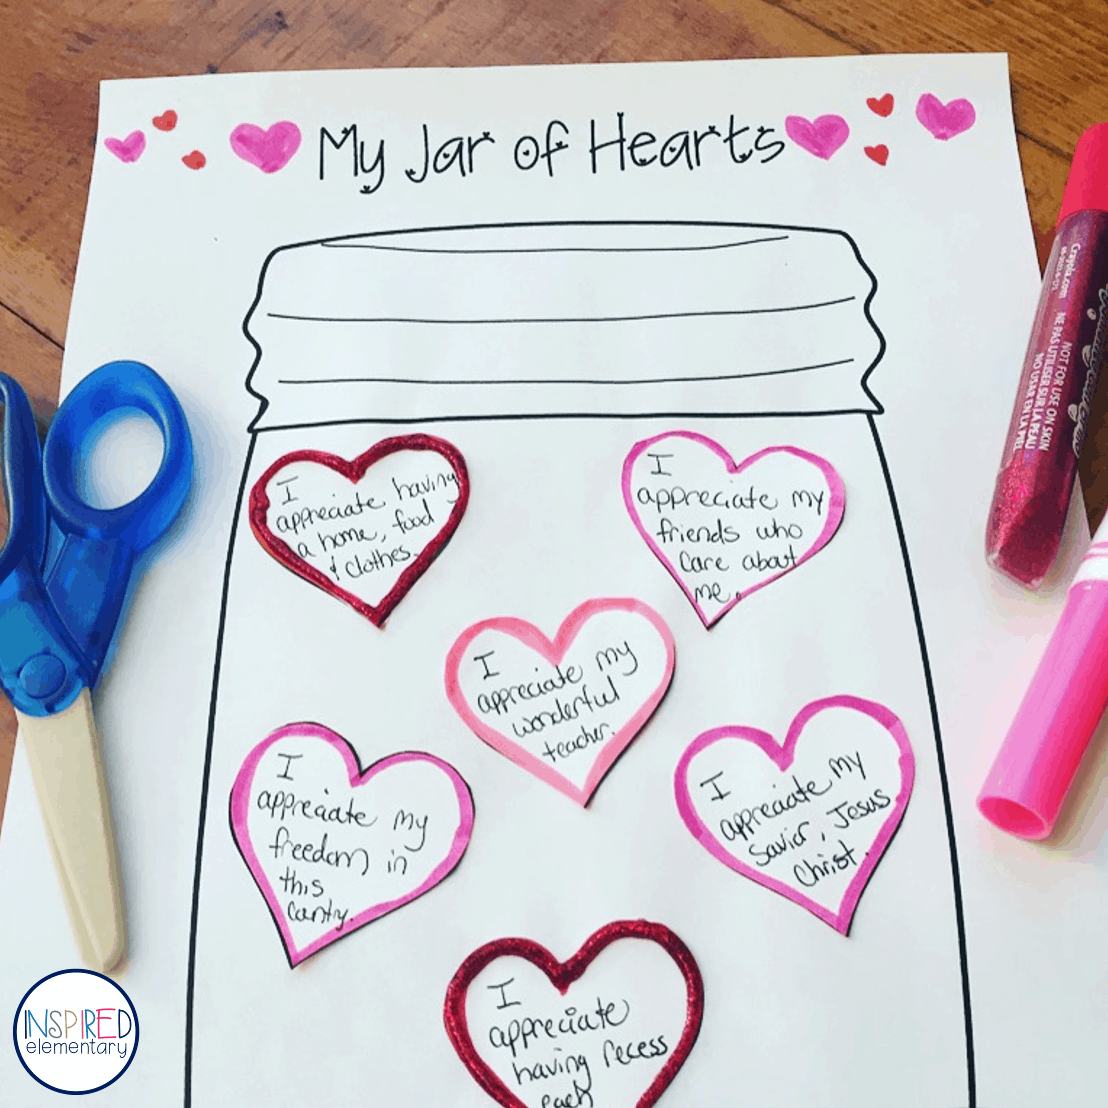 My Jar of Hearts
I
appreciate having
a home, food
& clothes.
I
appreciate my
friends who
care about
me.
I
appreciate my
wonderful
teacher.
I
appreciate my
freedom in
this
contry.
I
appreciate my
Savior, Jesus
Christ.
I
appreciate
having recess
each
Crayola.com
NOT FOR USE ON SKIN
NE PAS UTILISER SUR LA PEAU
NO USAR EN LA PIEL
INSPIRED
elementary